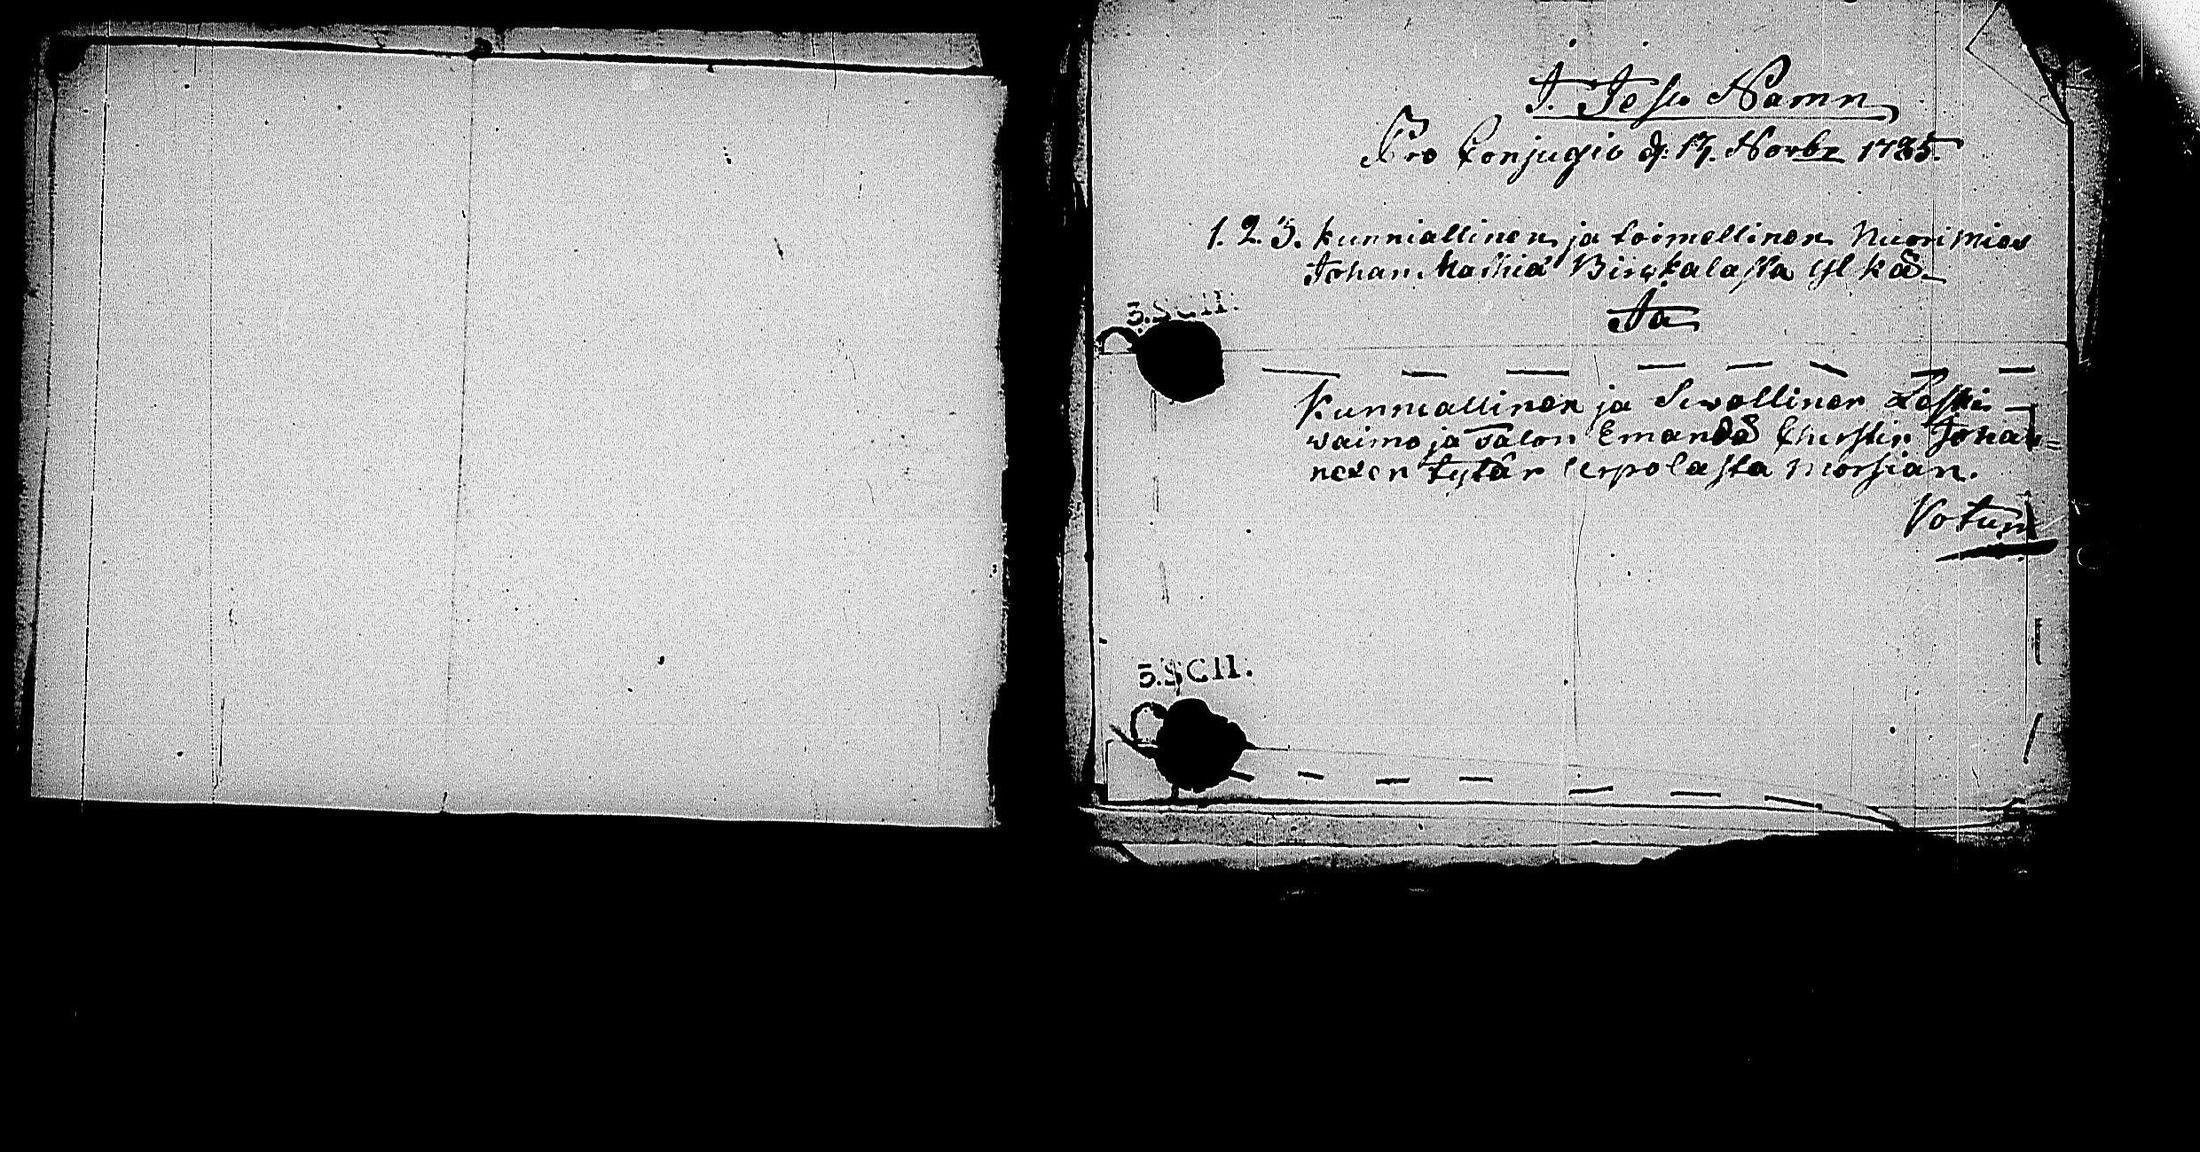 J. Jesu Namn
Pro Conjugio d. 17. Novbr 1785.
1. 2. 3. kunniallinen ja toimellinen Nuori Mies
Johan Mathia Birckalasta ylkä
Ja
3.SCH.
Kunniallinen ja Siwellinen Leski
waimo ja Talon Emändä Christin Johan=
nexen tytär Lerpolasta morsian.
Votum
5.SCH.